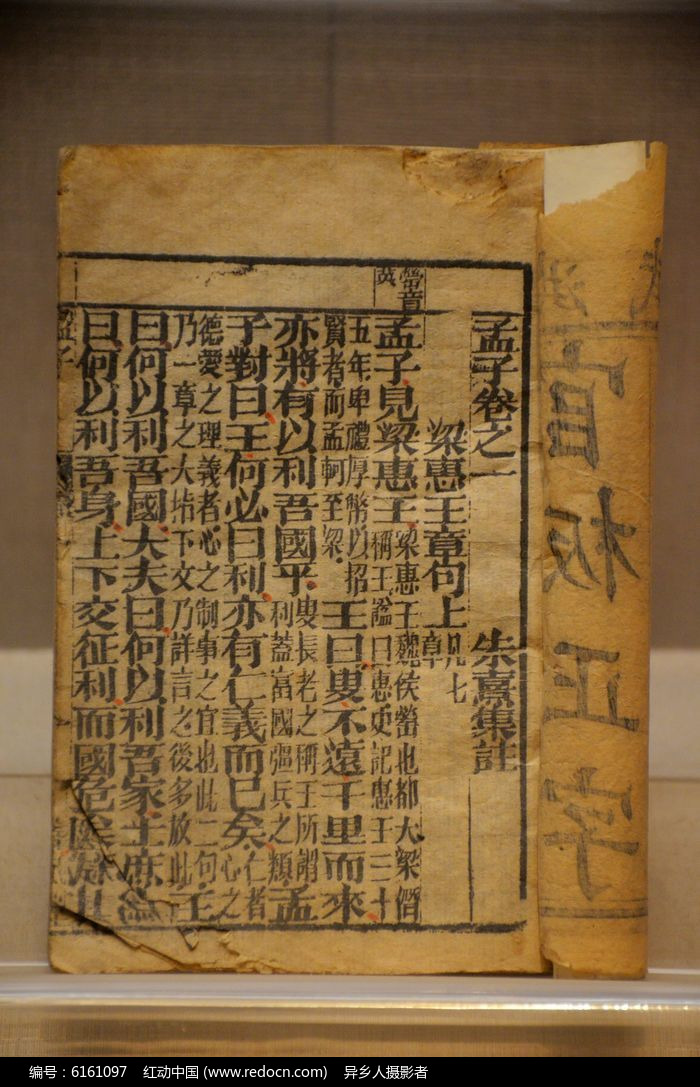 官板正字
孟子卷之一 朱熹集註
梁惠王章句上 凡七章
罃音英
孟子見梁惠王 梁惠王魏侯罃也都大梁僭稱王謚曰惠史記惠王三十
五年卑禮厚幣以招賢者而孟軻至梁 王曰叟不遠千里而來
亦將有以利吾國乎 叟長老之稱王所謂利蓋富國彊兵之類 孟
子對曰王何必曰利亦有仁義而已矣 仁者心之
德愛之理義者心之制事之宜也此二句乃一章之大指下文乃詳言之後多放此 王
曰何以利吾國大夫曰何以利吾家士庶人
曰何以利吾身上下交征利而國危矣
孟子
编号：6161097 红动中国 (www.redocn.com) 异乡人摄影者